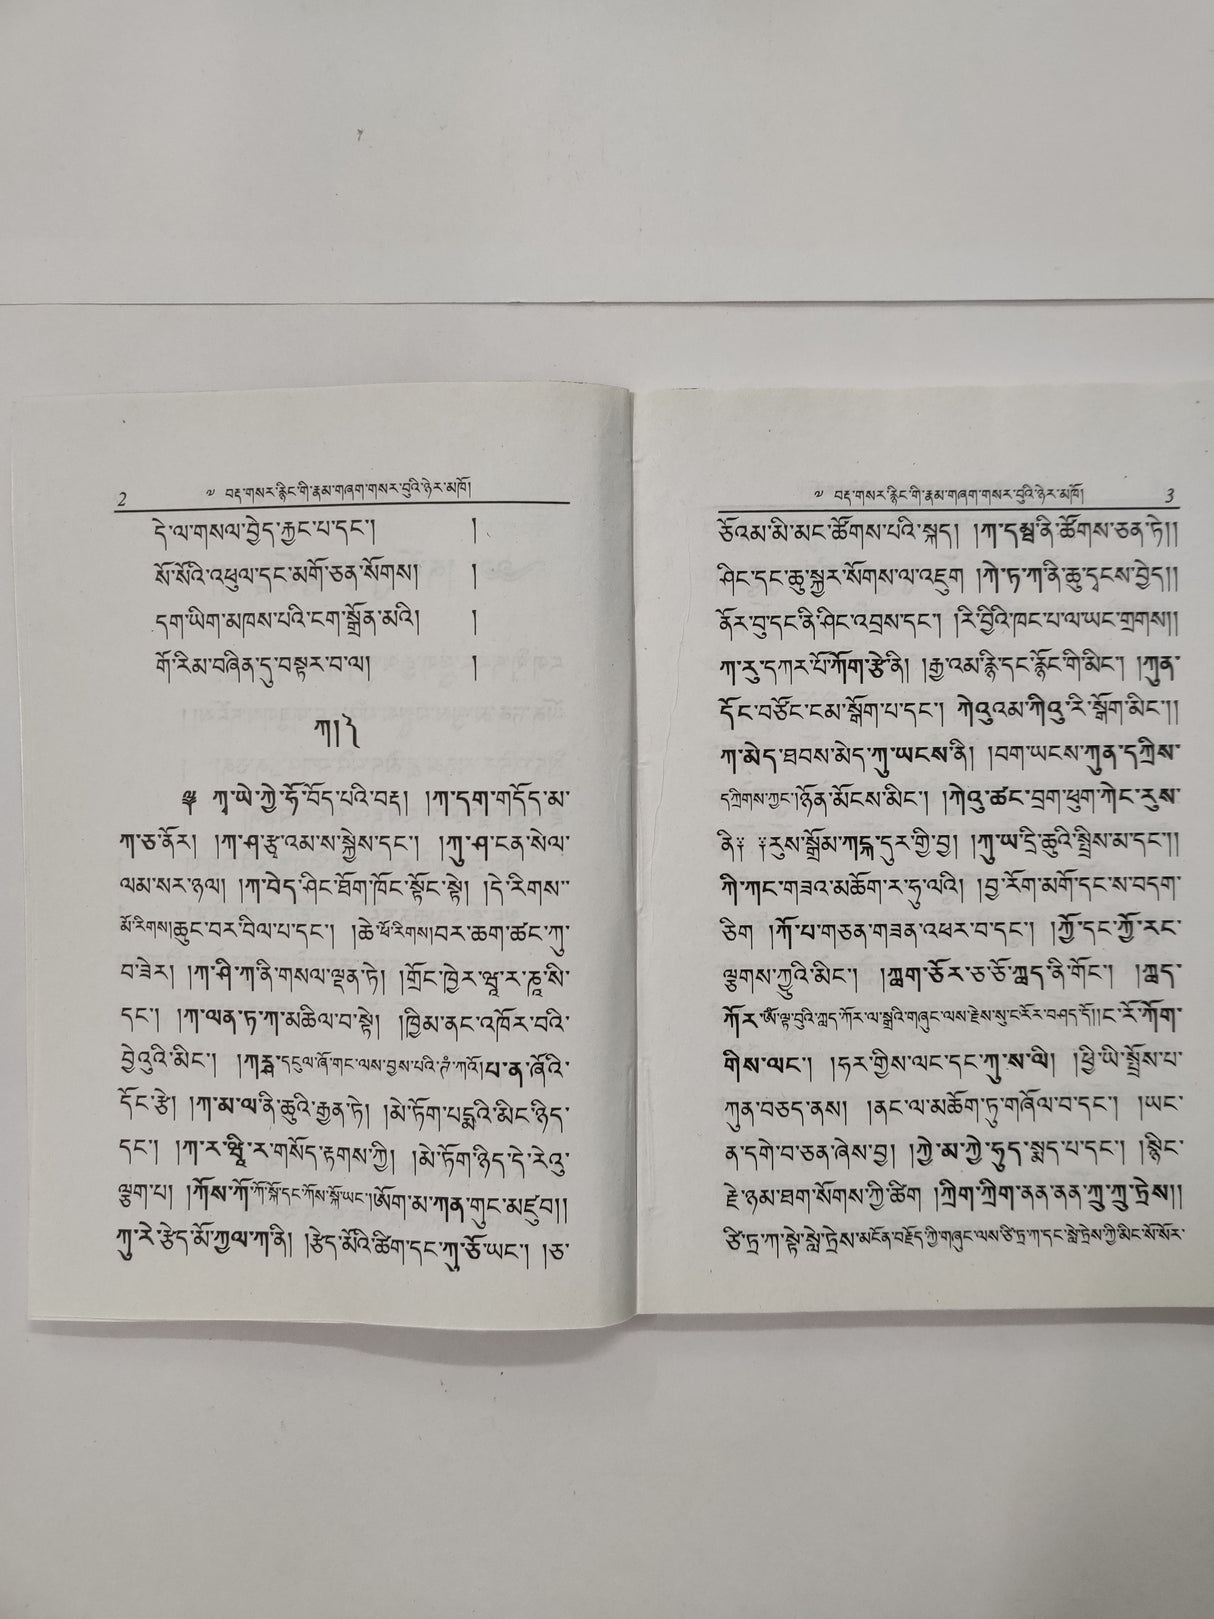 2
༧ བརྡ་གསར་རྙིང་གི་རྣམ་གཞག་གསར་བུའི་ཉེར་མཁོ།
དེ་ལ་གསལ་བྱེད་རྐྱང་པ་དང་། །
སོ་སོའི་འཕུལ་དང་མགོ་ཅན་སོགས། །
དག་ཡིག་མཁས་པའི་ངག་སྒྲོན་མའི། །
གོ་རིམ་བཞིན་དུ་བསྟར་བ་ལ། །
ཀ།
༈ ཀྭ་ཡེ་ཀྱེ་ཧོ་བོད་པའི་བརྡ། །ཀ་དག་གདོད་མ་
ཀ་ཅ་ནོར། །ཀ་ཤ་རྩྭ་འམ་ས་སྐྱེས་དང་། །ཀུ་ཤ་ངན་སེལ་
ལམ་སར་ཉལ། །ཀ་བེད་ཤིང་ཐོག་ཁོང་སྟོང་སྟེ། །དེ་རིགས་
མོ་རིགས།ཆུང་བར་བིལ་པ་དང་། །ཆེ་ཕོ་རིགས།བར་ཆག་ཚང་ཀུ་
བ་ཟེར། །ཀ་ཤི་ཀ་ནི་གསལ་ལྡན་ཏེ། །གྲོང་ཁྱེར་
དང་། །ཀ་ལན་ཏ་ཀ་མཆིལ་བ་སྟེ། །ཁྱིམ་ནང་འཁོར་བའི་
བྱེའུའི་མིང་། །དངུལ་ཞོ་གང་ལས་བྱས་པའི་ །པ་ན་ཞོའི་
དོང་ཙེ། །ཀ་མ་ལ་ནི་ཆུའི་རྒྱན་ཏེ། །མེ་ཏོག་པདྨའི་མིང་ཉིད་
དང་། །ཀ་ར་ར་གསོད་རྟགས་ཀྱི། །མེ་ཏོག་ཉིད་དེ་རེའུ་
ལྕུག་པ། །ཀོས་ཀོ་ཀོ་སྐོ་དང་ཀོས་སྐོ་ཡང་།ཨོག་མ་ཀན་གུང་མཛུབ།།
ཀུ་རེ་རྩེད་མོ་ཀྱལ་ཀ་ནི། །རྩེད་མོའི་ཚིག་དང་ཀུ་ཅོ་ཡང་། །ཅ་
༧ བརྡ་གསར་རྙིང་གི་རྣམ་གཞག་གསར་བུའི་ཉེར་མཁོ།
3
ཅོའམ་མི་མང་ཚོགས་པའི་སྐད། །ཀ་དམྦ་ནི་ཚོགས་ཅན་ཏེ།།
ཤིང་དང་ཆུ་སྐྱར་སོགས་ལ་འཇུག །ཀེ་ཏ་ཀ་ནི་ཆུ་དྭངས་བྱེད།།
ནོར་བུ་དང་ནི་ཤིང་འབྲས་དང་། །རི་བྱིའི་ཁང་པ་ལ་ཡང་གྲགས།།
ཀ་རུ་དཀར་པོ་ཀོག་རྩེ་ནི། །རྒྱ་འམ་རྙི་དང་རྙོང་གི་མིང་། །ཀུན་
དོང་བཙོང་ངམ་སྒོག་པ་དང་། ཀེའུའམ་ཀིའུ་རི་སྒོག་མིང་།།
ཀ་མེད་ཐབས་མེད་ཀུ་ཡངས་ནི། །བག་ཡངས་ཀུན་དཀྲིས་
དཀྲིགས་ཀྱང་།ཉོན་མོངས་མིང་། །ཀེའུ་ཚང་བྲག་ཕུག་ཀེང་རུས་
ནི༔ ༔རུས་སྒྲོམ་ཀངྐ་དུར་གྱི་བྱ། །ཀུ་ཡ་དྲི་ཆུའི་སྤྲིས་མ་དང་།།
ཀི་ཀང་གཟའ་མཆོག་ར་ཧུ་ལའི། །བྱ་རོག་མགོ་དང་ས་བདག་
ཅིག །ཀོ་པ་གཅན་གཟན་འཕར་བ་དང་། །ཀྱོ་དང་ཀྱོ་རང་
ལྕགས་ཀྱུའི་མིང་། །ཀླག་ཅོར་ཅ་ཅོ་ཀླད་ནི་གོང་། །ཀླད་
ཀོར་ཨོཾ་ལྟ་བུའི་ཀླད་ཀོར་ལ་སྒྲའི་གཞུང་ལས་རྗེས་སུ་ངརོར་བཤད་དོ།།ང་རོ་ཀོག་
གིས་ལང་། །ཧར་གྱིས་ལང་དང་ཀུ་ས་ལི། །ཕྱི་ཡི་སྤྲོས་པ་
ཀུན་བཅད་ནས། །ནང་ལ་མཆོག་ཏུ་གཞོལ་བ་དང་། །ཡང་
ན་དགེ་བ་ཅན་ཞེས་བྱ། །ཀྱེ་མ་ཀྱེ་ཧུད་སྨད་པ་དང་། །སྙིང་
རྗེ་ཉམ་ཐག་སོགས་ཀྱི་ཚིག །ཀྲིག་ཀྲིག་ནན་ནན་ཀྲུ་ཀྲུ་ཏྲེས།།
ཙི་ཏྲ་ཀ་སྟེ་སླེ་ཏྲེས་མངོན་བརྗོད་ཀྱི་གཞུང་ལས་ཙི་ཏྲ་ཀ་དང་སླེ་ཏྲེས་ཀྱི་མིང་སོ་སོར་